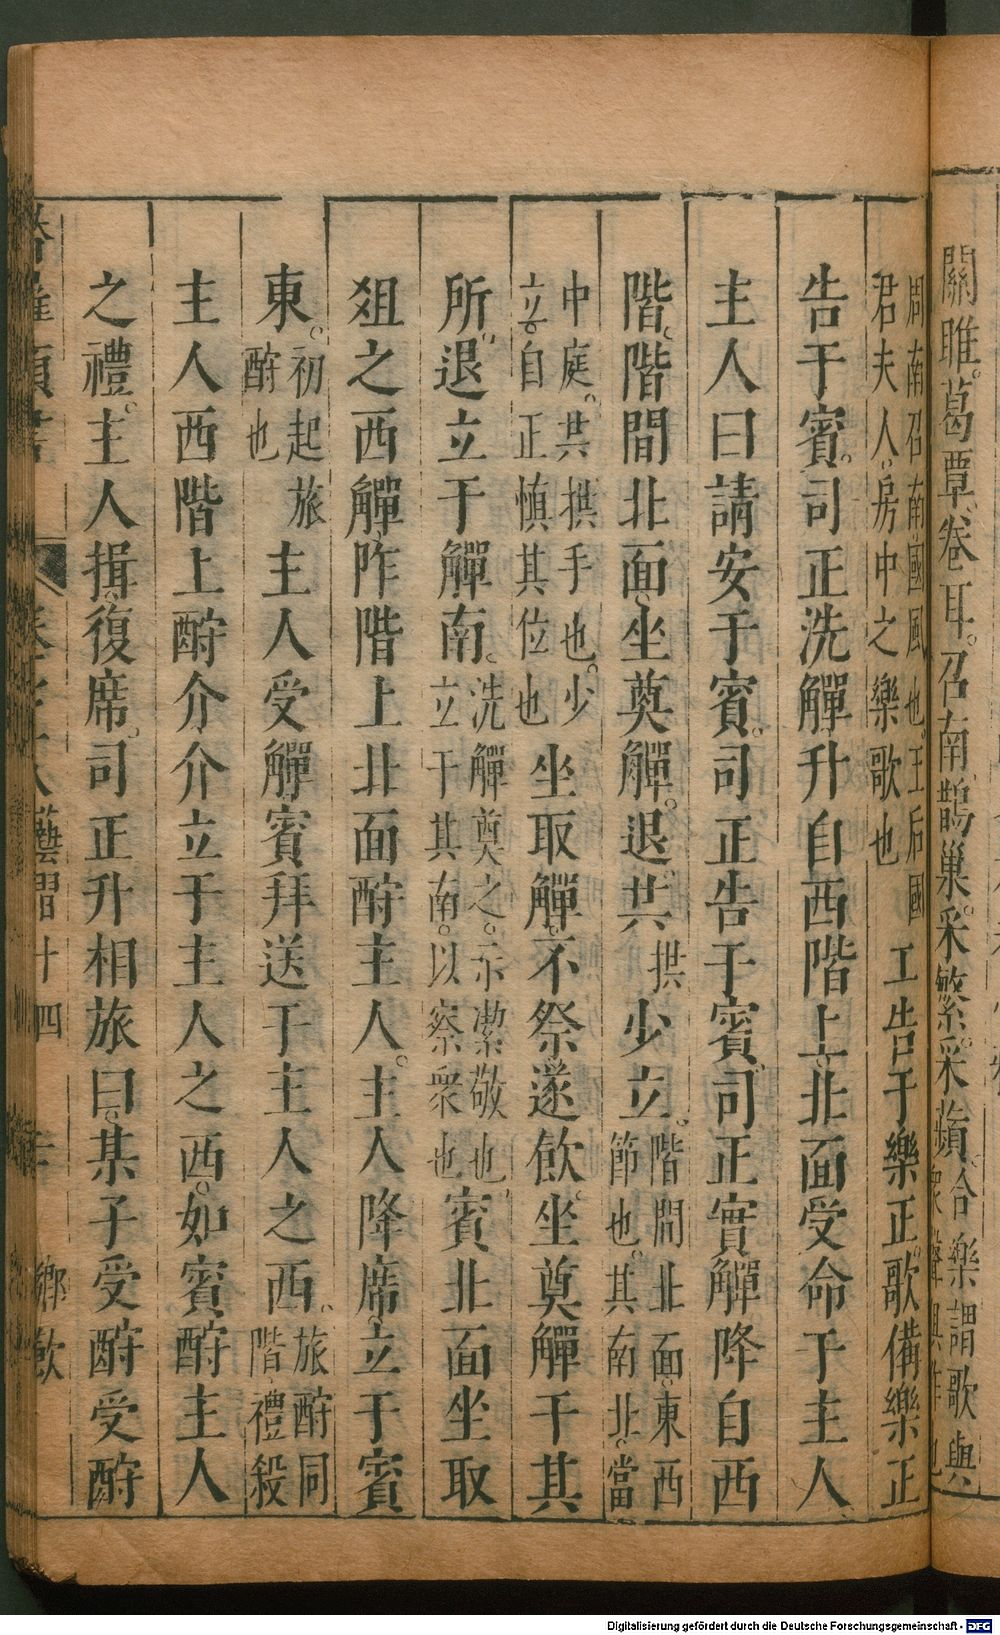 關雎。葛覃、卷耳。召南、鵲巢。采蘩。采蘋。合樂謂歌與衆聲俱作也
周南召南、國風也。王后國君夫人。房中之樂歌也 工告于樂正。歌備樂正
告于賓。司正洗觶升自西階上、北面受命于主人
主人曰請安于賓。司正告于賓、司正實觶降自西
階。階間北面、坐奠觶。退。共拱少立。階間北面、東西節也。其南北、當
中庭。共拱手也。少立。自正慎其位也 坐取觶、不祭遂飲。坐奠觶于其
所、退立于觶南。洗觶奠之。示潔敬也、立于其南。以察衆也 賓北面坐取
俎之西觶、阼階上北面酧主人。主人降席。立于賓
東。初起旅酧也 主人受觶、賓拜送于主人之西。旅酧同階、禮殺
主人西階上酧介、介立于主人之西。如賓酧主人
之禮。主人揖、復席。司正升相旅曰。某子受酧受酧
藝習十四
鄉飲
Digitalisierung gefördert durch die Deutsche Forschungsgemeinschaft - DFG